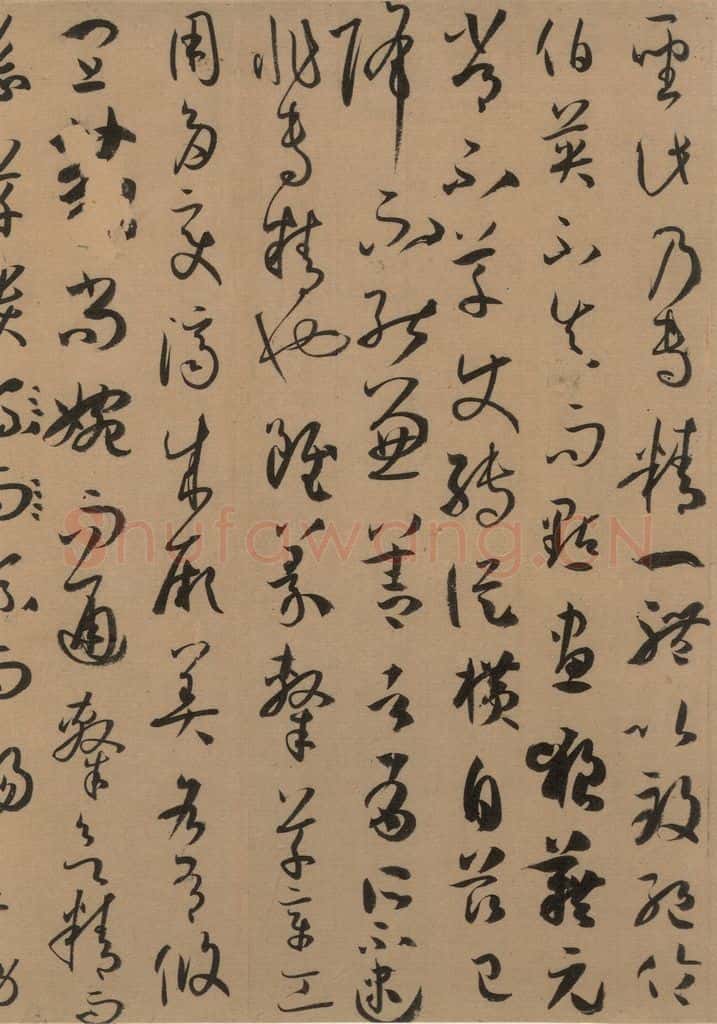 聖此乃專精一體以致絕倫
伯英不真而點畫狼藉元
常不草使轉縱橫自茲已
降不能兼善者有所不逮
非專精也雖篆隸草章工
用多變濟成厥美各有攸
宜篆尚婉而通隸欲精而
密草貴流而流而暢
Shufawang.CN